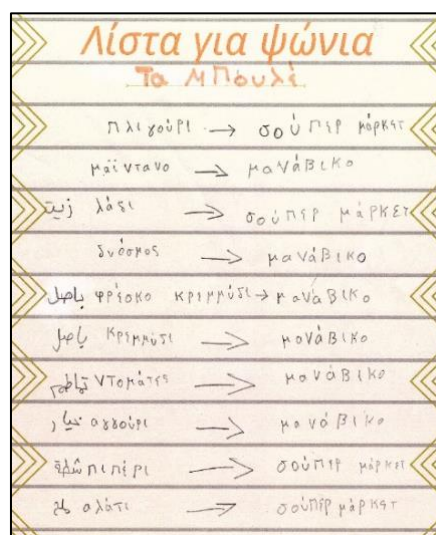 Λίστα για ψώνια
Τα Μπουλέ
πλιγούρι → σούπερ μάρκετ
μαϊντανο → μανάβικο
زيت λάδι → σούπερ μάρκετ
δυόσμος → μανάβικο
باصل φρέσκο κρεμμύδι → μανάβικο
باصل κρεμμύδι → μανάβικο
ντομάτες → μανάβικο
αγγούρι → μανάβικο
πιπέρι → σούπερ μάρκετ
αλάτι → σούπερ μάρκετ